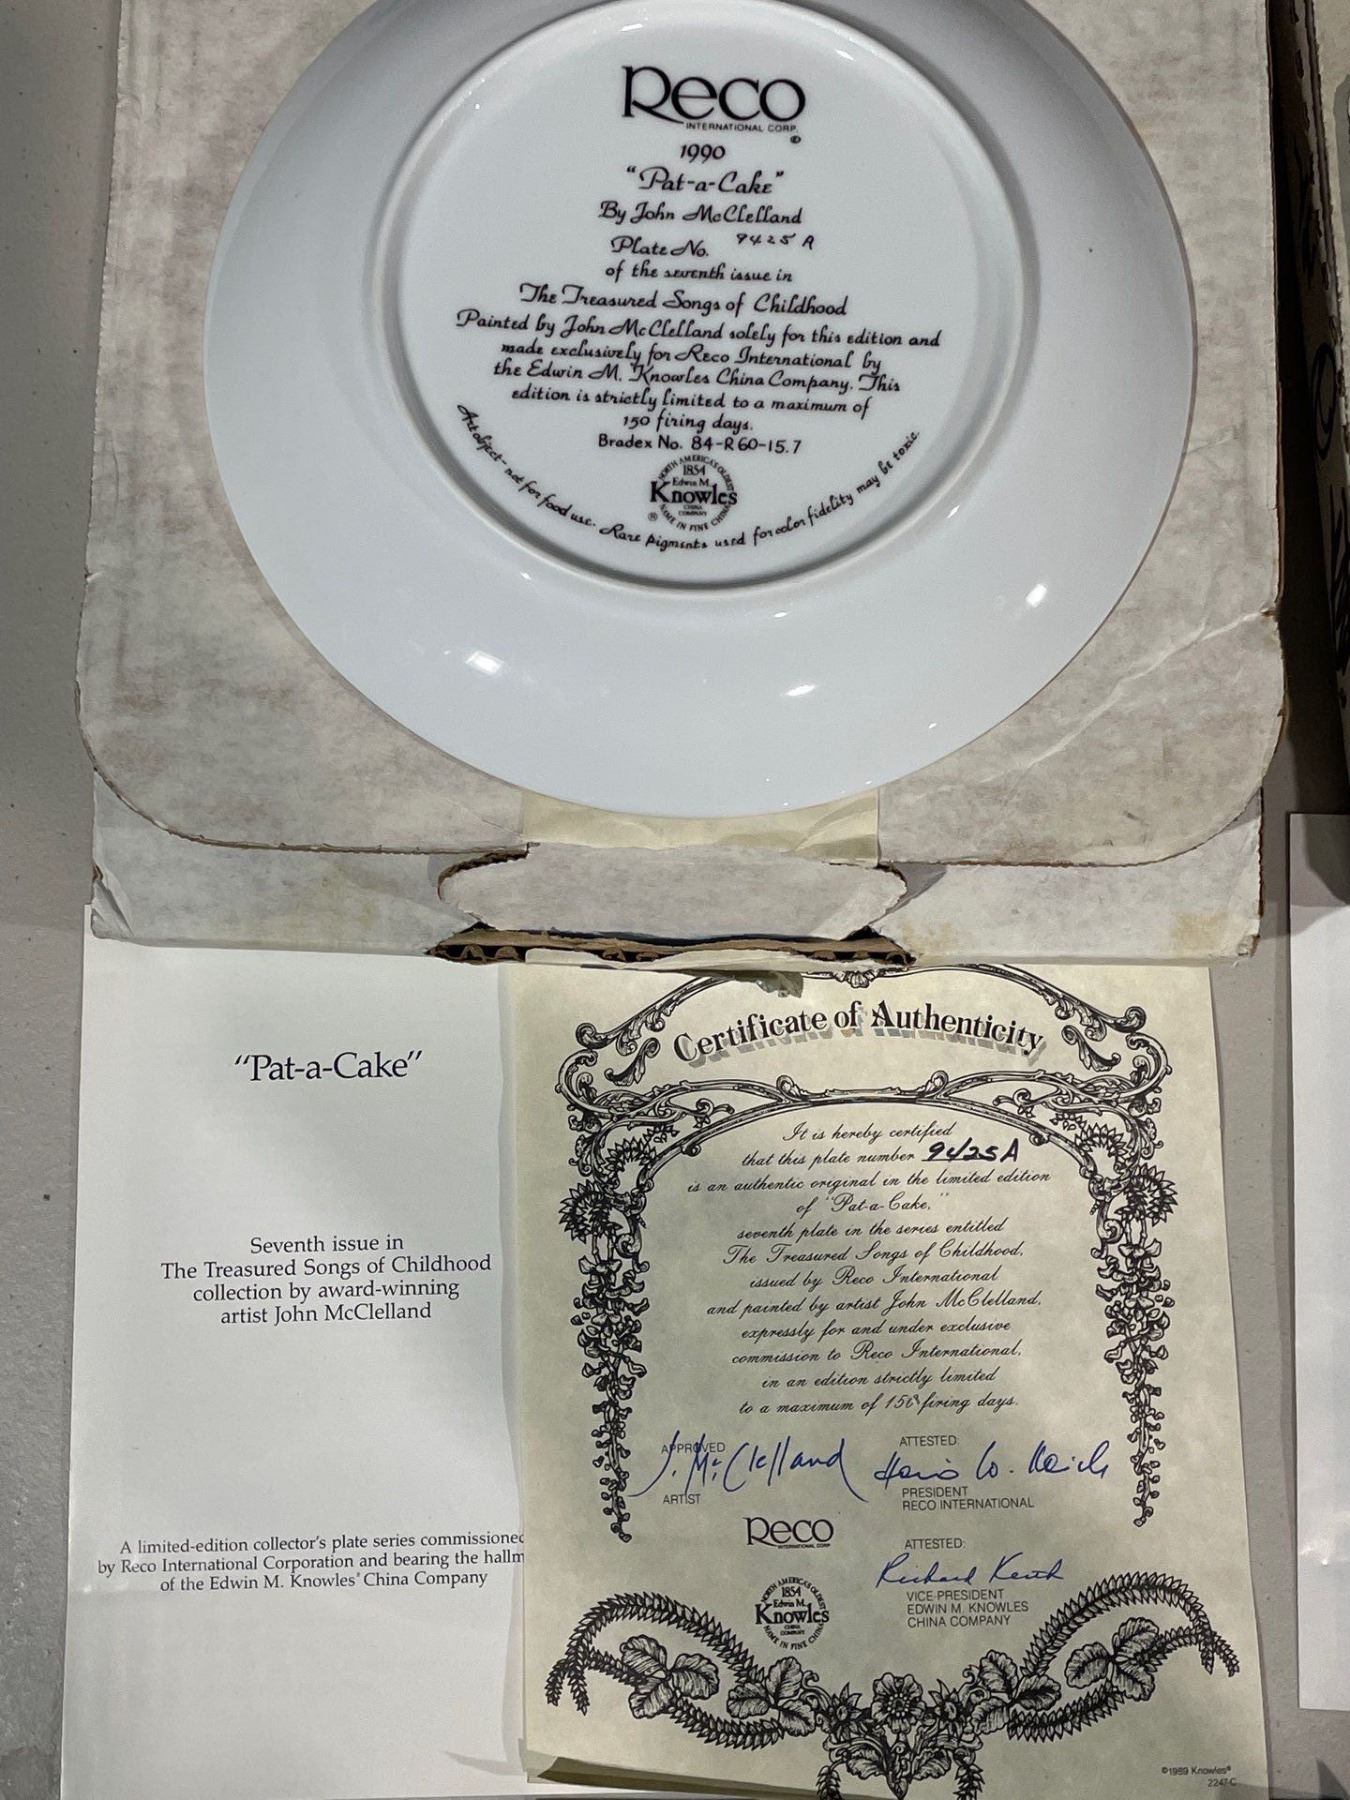 Reco
INTERNATIONAL CORP.
©
1990
"Pat-a-Cake"
By John McClelland
Plate No. 9425 A
of the seventh issue in
The Treasured Songs of Childhood
Painted by John McClelland solely for this edition and
made exclusively for Reco International by
the Edwin M. Knowles China Company. This
edition is strictly limited to a maximum of
150 firing days.
Bradex No. 84-R60-15.7
NORTH AMERICA'S OLDEST
1854
Edwin M.
Knowles
CHINA
COMPANY
® NAME IN FINE CHINA
Art object - not for food use. Rare pigments used for color fidelity may be toxic.
"Pat-a-Cake"
Seventh issue in
The Treasured Songs of Childhood
collection by award-winning
artist John McClelland
A limited-edition collector's plate series commissioned
by Reco International Corporation and bearing the hallm
of the Edwin M. Knowles® China Company
Certificate of Authenticity
It is hereby certified
that this plate number 9425A
is an authentic original in the limited edition
of "Pat-a-Cake,"
seventh plate in the series entitled
The Treasured Songs of Childhood,
issued by Reco International
and painted by artist John McClelland,
expressly for and under exclusive
commission to Reco International,
in an edition strictly limited
to a maximum of 150 firing days.
APPROVED
J. McClelland
ARTIST
ATTESTED:
PRESIDENT
RECO INTERNATIONAL
Reco
INTERNATIONAL CORP.
ATTESTED:
Richard Keith
VICE-PRESIDENT
EDWIN M. KNOWLES
CHINA COMPANY
NORTH AMERICA'S OLDEST
1854
Edwin M.
Knowles
CHINA
COMPANY
NAME IN FINE CHINA
©1989 Knowles®
2247-C